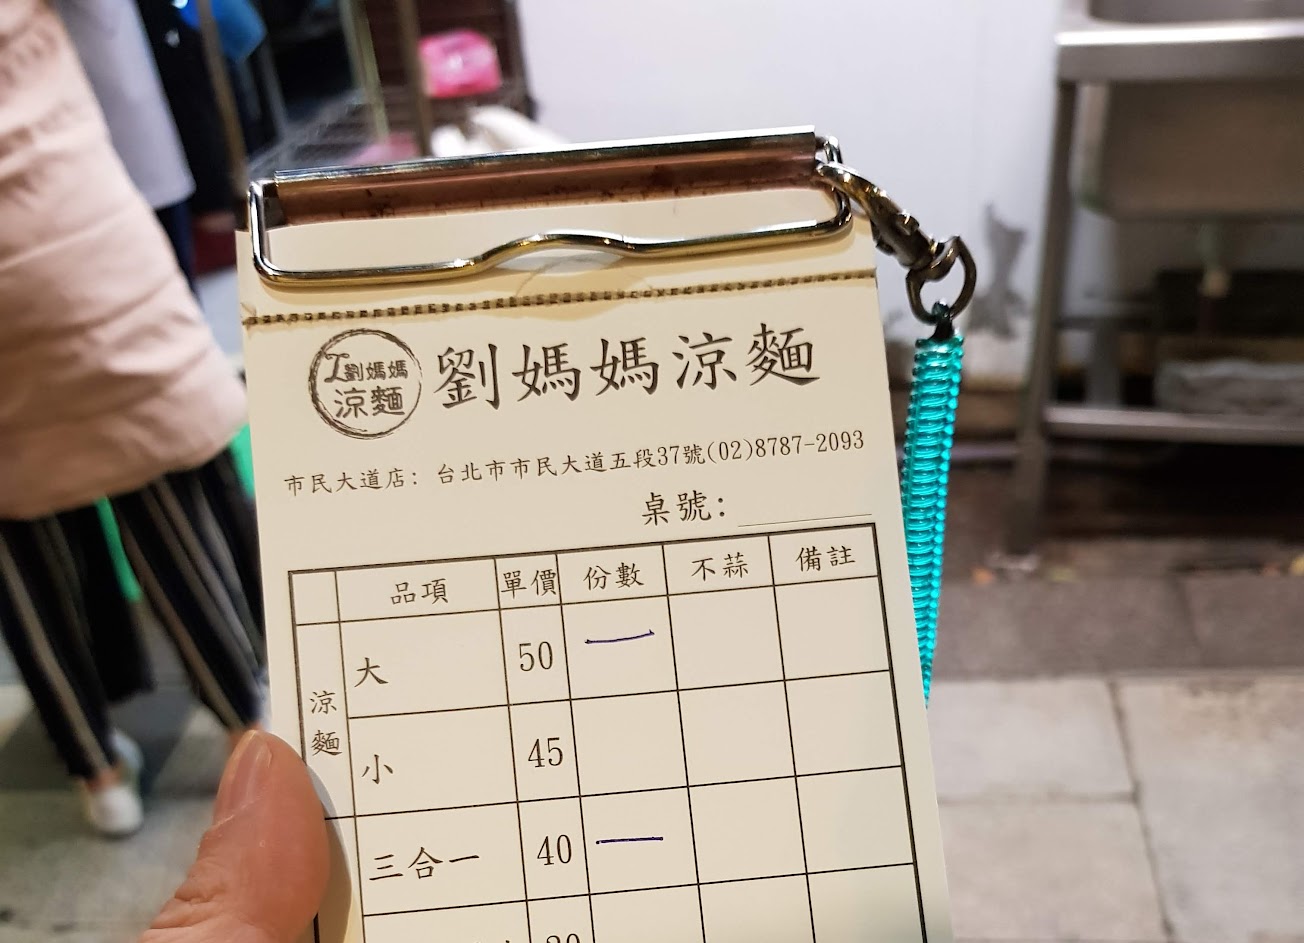 劉媽媽
涼麵
劉媽媽涼麵
市民大道店: 台北市市民大道五段37號(02)8787-2093
桌號:
品項 單價 份數 不蒜 備註
涼麵
大 50 一
小 45
三合一 40 一